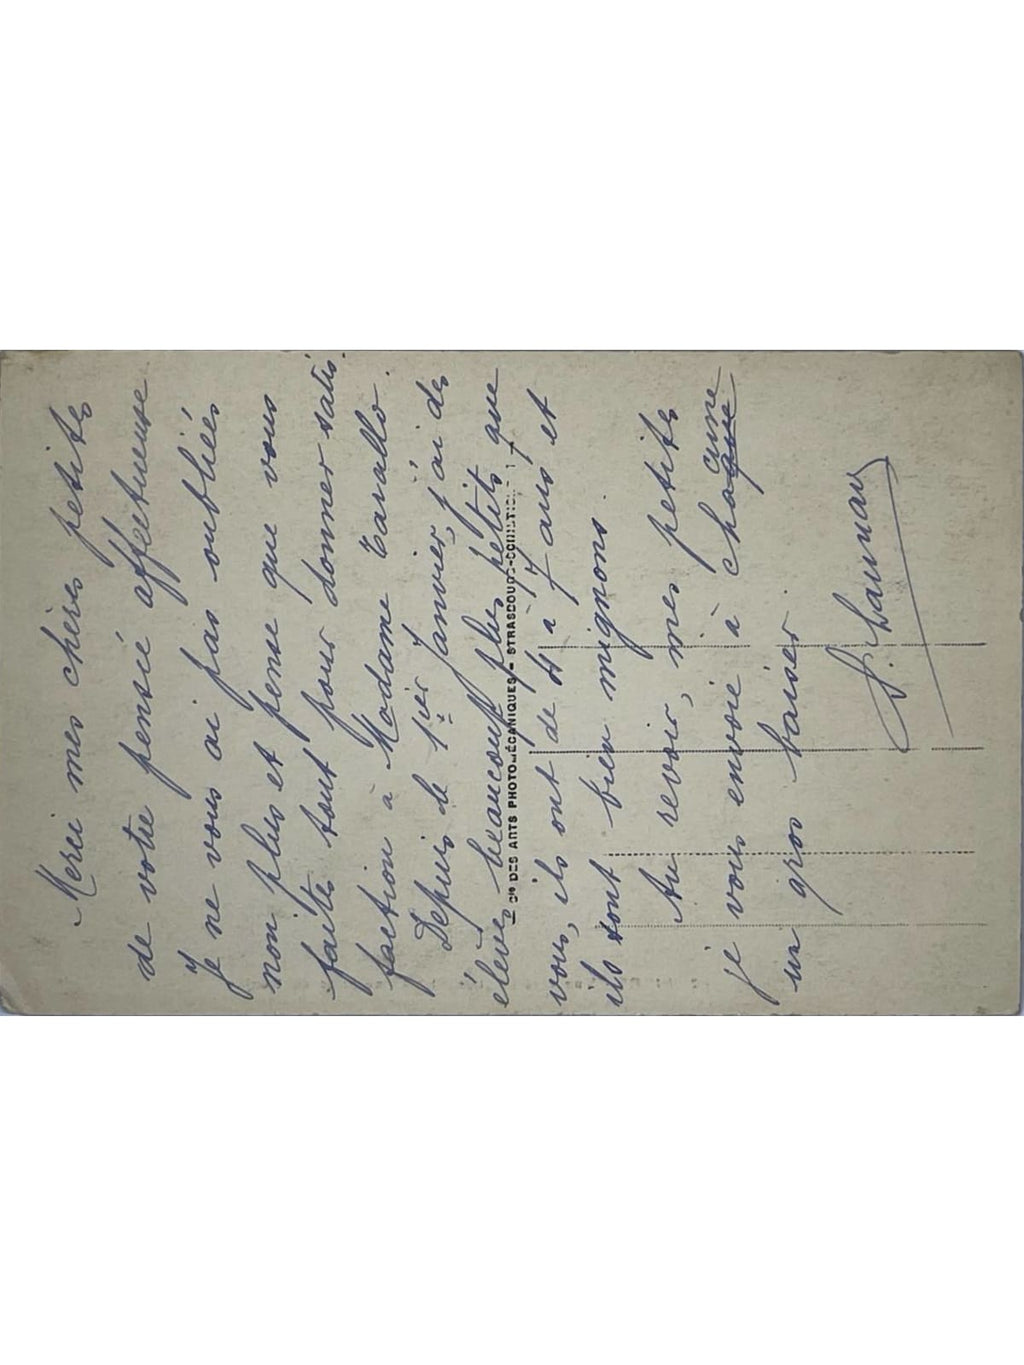 Merci mes chères petites
de votre pensée affectueuse
Je ne vous ai pas oubliées
non plus et pense que vous
faites tout pour donner satis
faction à Madame Carallo.
Depuis le 1ier Janvier, j'ai des
élèves beaucoup plus petits que
Cie DES ARTS PHOTOMÉCANIQUES - STRASBOURG
vous, ils ont de 4 à 7 ans et
ils sont bien mignons.
Au revoir, mes petites
je vous envoie à chaque cune
un gros baiser.